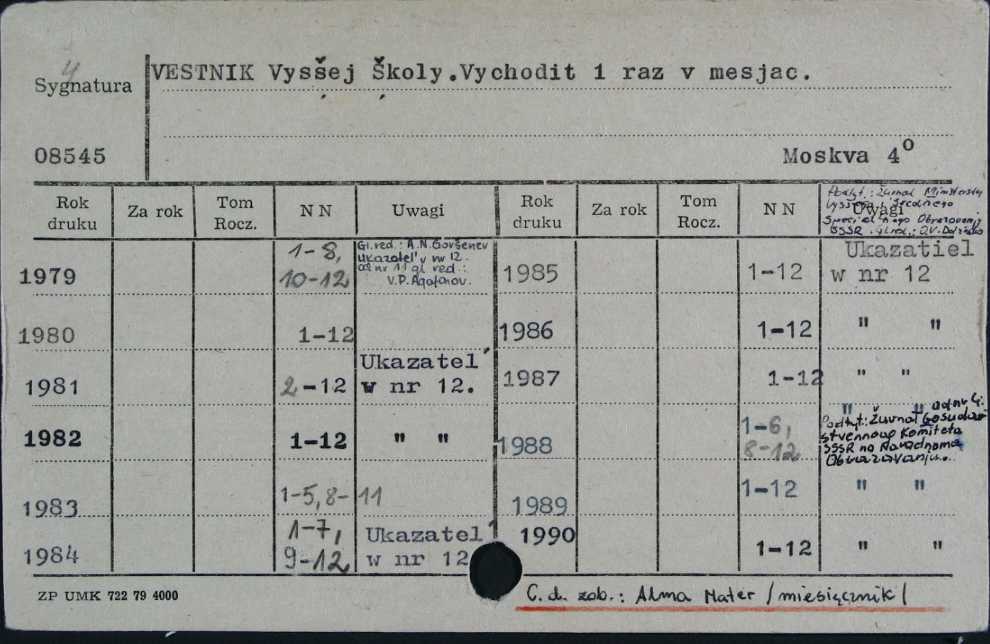 4
Sygnatura
VESTNIK Vysšej Školy. Vychodit 1 raz v mesjac.
08545
Moskva 4°
Rok druku | Za rok | Tom Rocz. | N N | Uwagi | Rok druku | Za rok | Tom Rocz. | N N | Uwagi
Podtyt.: Žurnal Ministerstva
Vysšego i Srednego
Special'nogo Obrazovanija
SSSR. Gl. red.:
1979 | 1-8, 10-12 | Gl. red.: A.N. Goršenev
Ukazatel' v nr 12.
Od nr 11 gl. red.:
V.P. Agafonov.
1985 | 1-12 | Ukazatiel
w nr 12
1980 | 1-12
1986 | 1-12 | " "
1981 | 2-12 | Ukazatel'
w nr 12.
1987 | 1-12 | " "
1982 | 1-12 | " "
1988 | 1-6, 8-12 | " " Od nr 4:
Podtyt: Žurnal Gosudar-
stvennogo Komiteta
SSSR no Narodnomu
Obrazovaniju.
1983 | 1-5, 8-11
1989 | 1-12 | " "
1984 | 1-7, 9-12 | Ukazatel'
w nr 12
1990 | 1-12 | " "
ZP UMK 722 79 4000
C.d. zob.: Alma Mater /miesięcznik/